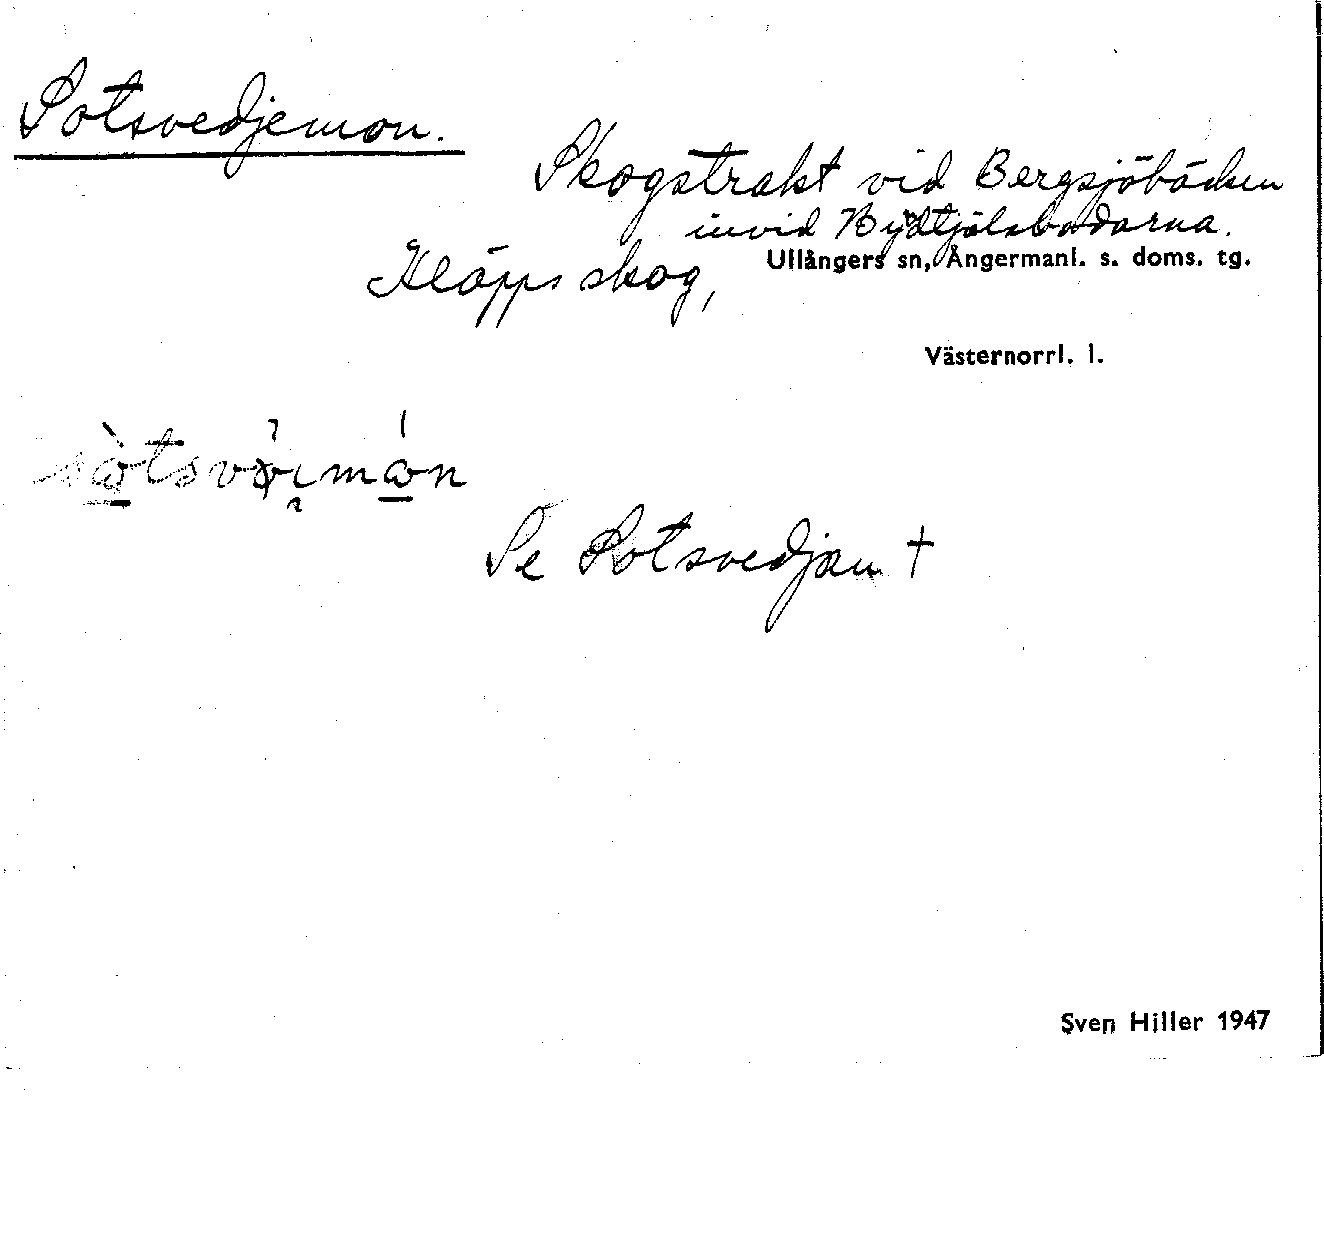 Sotsvedjemon.
Skogstrakt vid Bergsjöbäcken
invid
Kläpps skog, Ullångers sn, Ångermanl. s. doms. tg.
Västernorrl. l.
Se Sotsvedjan †
Sven Hiller 1947